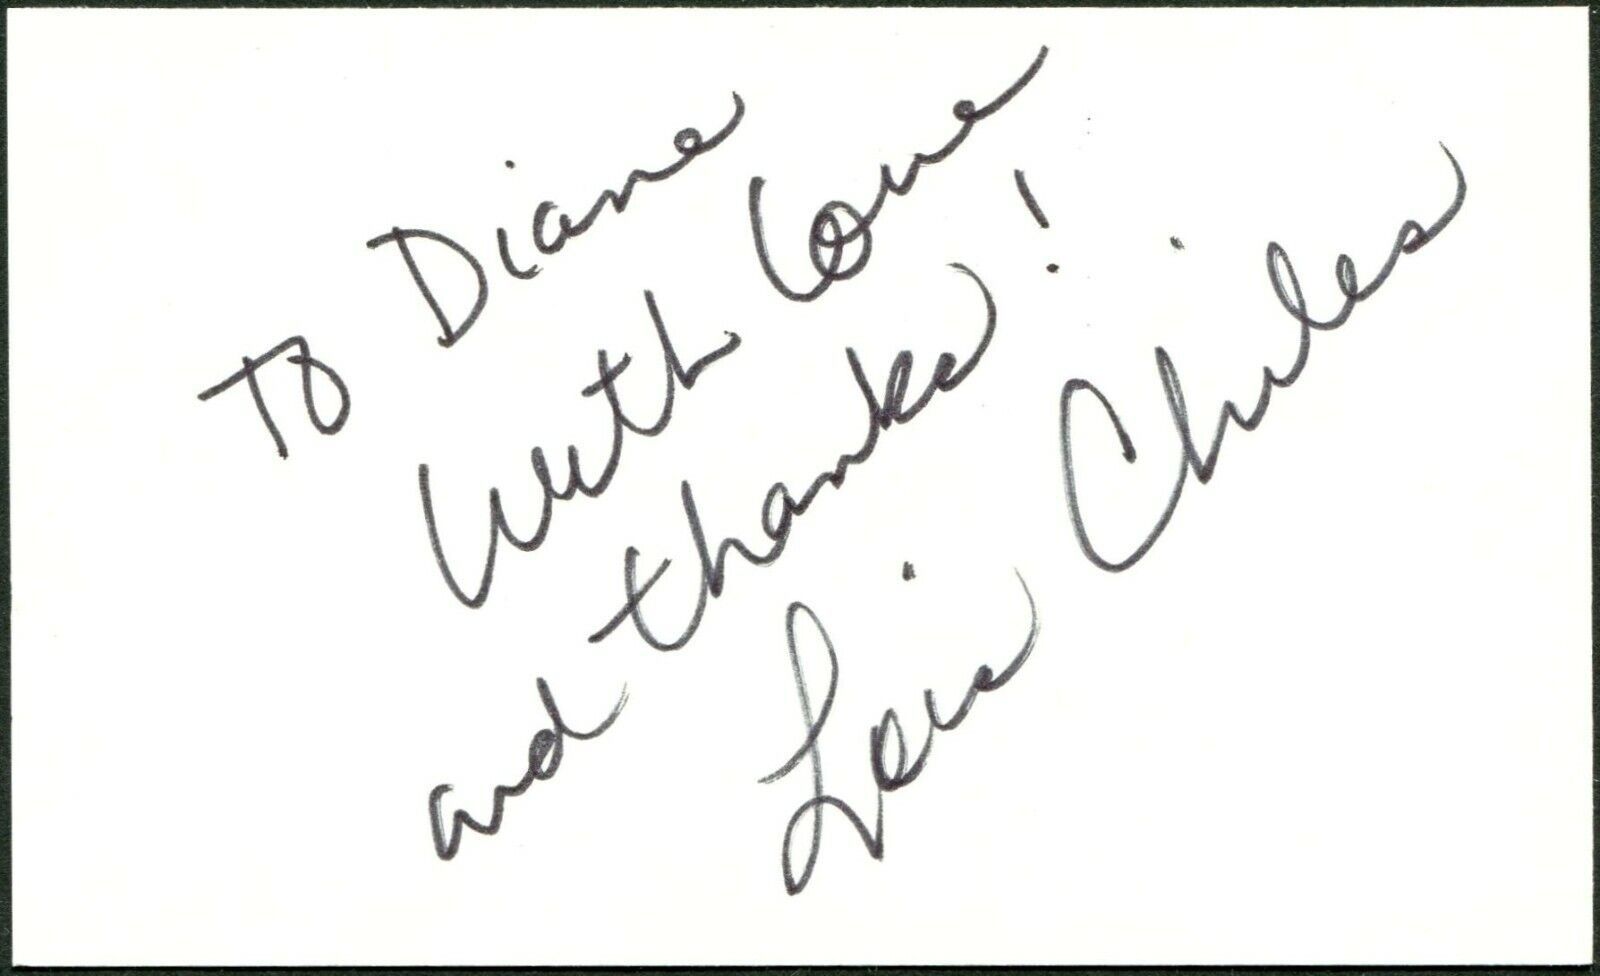 To Diane
With Love
and thanks!
Lois Chiles